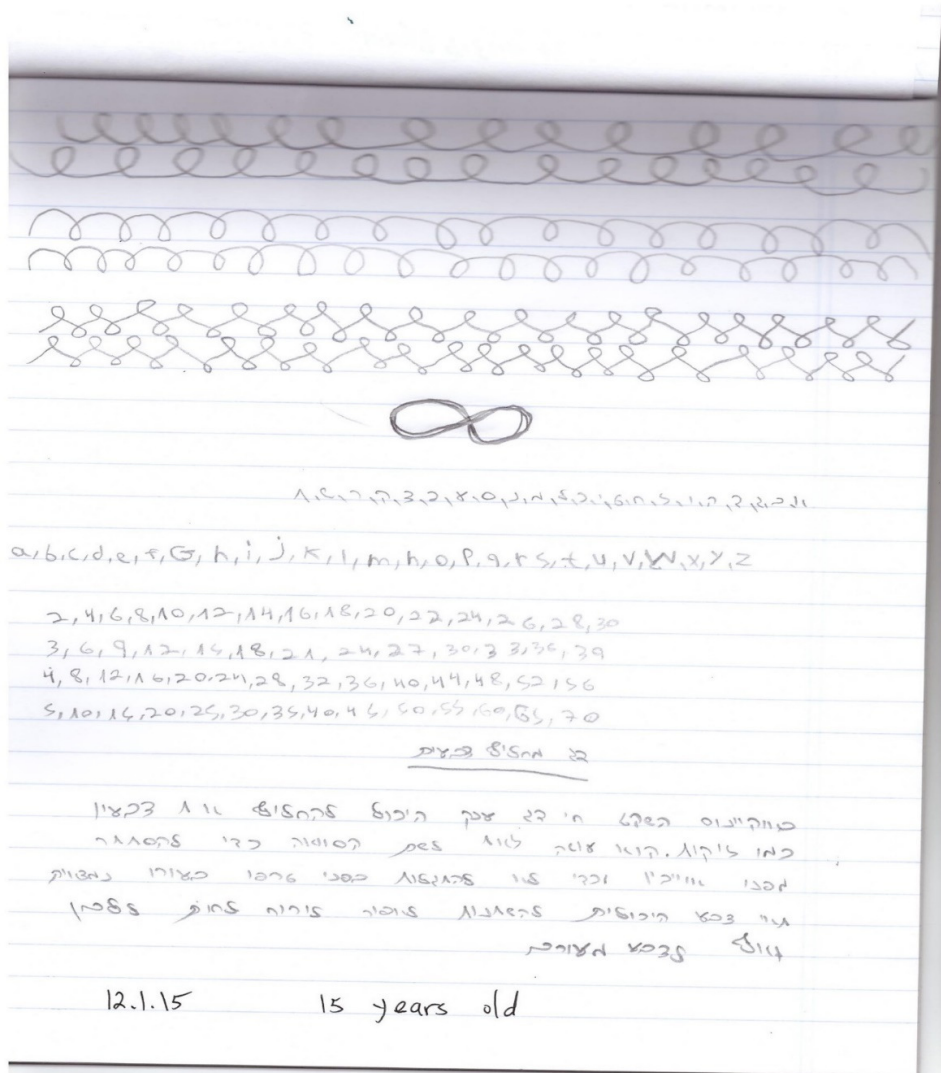 א,ב,ג,ד,ה,ו,ז,ח,ט,י,כ,ל,מ,נ,ס,ע,פ,צ,ק,ר,ש,ת
a,b,c,d,e,f,G,h,i,j,k,l,m,n,o,p,q,r s,t,u,v,w,x,y,z
2,4,6,8,10,12,14,16,18,20,22,24,26,28,30
3,6,9,12,15,18,21,24,27,30,33,36,39
4,8,12,16,20,24,28,32,36,40,44,48,52,56
5,10,15,20,25,30,35,40,45,50,55,60,65,70
דג מחליף צבעים
באוקיינוס השקט חי דג ענק היכול להחליף את צבעיו
כמו זיקית. הוא עושה זאת לשם הסוואה כדי להסתתר
מפני אויביו וכדי לא להתגלות בפני טרפו בעורו
תאי צבע היכולים להשתנות לחום ללבן
ואף לצבע מעורב
12.1.15 15 years old